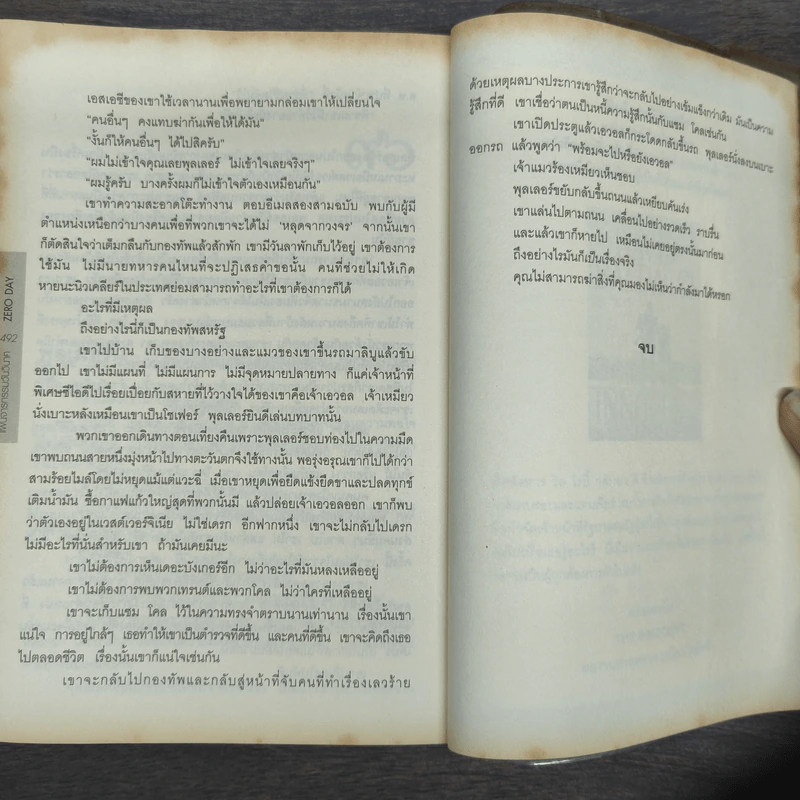 เอสเอซีของเขาใช้เวลานานเพื่อพยายามกล่อมเขาให้เปลี่ยนใจ
"คนอื่นๆ คงแทบฆ่ากันเพื่อให้ได้มัน"
"งั้นก็ให้คนอื่นๆ ได้ไปสิครับ"
"ผมไม่เข้าใจคุณเลยพุลเลอร์ ไม่เข้าใจเลยจริงๆ"
"ผมรู้ครับ บางครั้งผมก็ไม่เข้าใจตัวเองเหมือนกัน"
เขาทำความสะอาดโต๊ะทำงาน ตอบอีเมลสองสามฉบับ พบกับผู้มี
ตำแหน่งเหนือกว่าบางคนเพื่อที่พวกเขาจะได้ไม่ 'หลุดจากวงจร' จากนั้นเขา
ก็ตัดสินใจว่าเต็มกลืนกับกองทัพแล้วสักพัก เขามีวันลาพักเก็บไว้อยู่ เขาต้องการ
ใช้มัน ไม่มีนายทหารคนไหนที่จะปฏิเสธคำขอนั้น คนที่ช่วยไม่ให้เกิด
หายนะนิวเคลียร์ในประเทศย่อมสามารถทำอะไรที่เขาต้องการก็ได้
อะไรที่มีเหตุผล
ถึงอย่างไรนี่ก็เป็นกองทัพสหรัฐ
เขาไปบ้าน เก็บของบางอย่างและแมวของเขาขึ้นรถมาลิบูแล้วขับ
ออกไป เขาไม่มีแผนที่ ไม่มีแผนการ ไม่มีจุดหมายปลายทาง ก็แค่เจ้าหน้าที่
พิเศษซีไอดีไปเรื่อยเปื่อยกับสหายที่ไว้วางใจได้ของเขาคือเจ้าเอวอล เจ้าเหมียว
นั่งเบาะหลังเหมือนเขาเป็นโชเฟอร์ พุลเลอร์ยินดีเล่นบทบาทนั้น
พวกเขาออกเดินทางตอนเที่ยงคืนเพราะพุลเลอร์ชอบท่องไปในความมืด
เขาพบถนนสายหนึ่งมุ่งหน้าไปทางตะวันตกจึงใช้ทางนั้น พอรุ่งอรุณเขาก็ไปได้กว่า
สามร้อยไมล์โดยไม่หยุดแม้แต่แวะฉี่ เมื่อเขาหยุดเพื่อยืดแข้งยืดขาและปลดทุกข์
เติมน้ำมัน ซื้อกาแฟแก้วใหญ่สุดที่พวกนั้นมี แล้วปล่อยเจ้าเอวอลออก เขาก็พบ
ว่าตัวเองอยู่ในเวสต์เวอร์จิเนีย ไม่ใช่เดรก อีกฟากหนึ่ง เขาจะไม่กลับไปเดรก
ไม่มีอะไรที่นั่นสำหรับเขา ถ้ามันเคยมีนะ
เขาไม่ต้องการเห็นเดอะบังเกอร์อีก ไม่ว่าอะไรที่มันหลงเหลืออยู่
เขาไม่ต้องการพบพวกเทรนต์และพวกโคล ไม่ว่าใครที่เหลืออยู่
เขาจะเก็บแซม โคล ไว้ในความทรงจำตราบนานเท่านาน เรื่องนั้นเขา
แน่ใจ การอยู่ใกล้ๆ เธอทำให้เขาเป็นตำรวจที่ดีขึ้น และคนที่ดีขึ้น เขาจะคิดถึงเธอ
ไปตลอดชีวิต เรื่องนั้นเขาก็แน่ใจเช่นกัน
เขาจะกลับไปกองทัพและกลับสู่หน้าที่จับคนที่ทำเรื่องเลวร้าย
ZERO DAY
492
แผนฆาตกรรมวันวินาศ
ด้วยเหตุผลบางประการเขารู้สึกว่าจะกลับไปอย่างเข้มแข็งกว่าเดิม มันเป็นความ
รู้สึกที่ดี เขาเชื่อว่าตนเป็นหนี้ความรู้สึกนั้นกับแซม โคลเช่นกัน
เขาเปิดประตูแล้วเอวอลก็กระโดดกลับขึ้นรถ พุลเลอร์นั่งลงบนเบาะ
ออกรถ แล้วพูดว่า "พร้อมจะไปหรือยังเอวอล"
เจ้าแมวร้องเหมียวเห็นชอบ
พุลเลอร์ขยับกลับขึ้นถนนแล้วเหยียบคันเร่ง
เขาแล่นไปตามถนน เคลื่อนไปอย่างรวดเร็ว ราบรื่น
และแล้วเขาก็หายไป เหมือนไม่เคยอยู่ตรงนั้นมาก่อน
ถึงอย่างไรมันก็เป็นเรื่องจริง
คุณไม่สามารถฆ่าสิ่งที่คุณมองไม่เห็นว่ากำลังมาได้หรอก
จบ